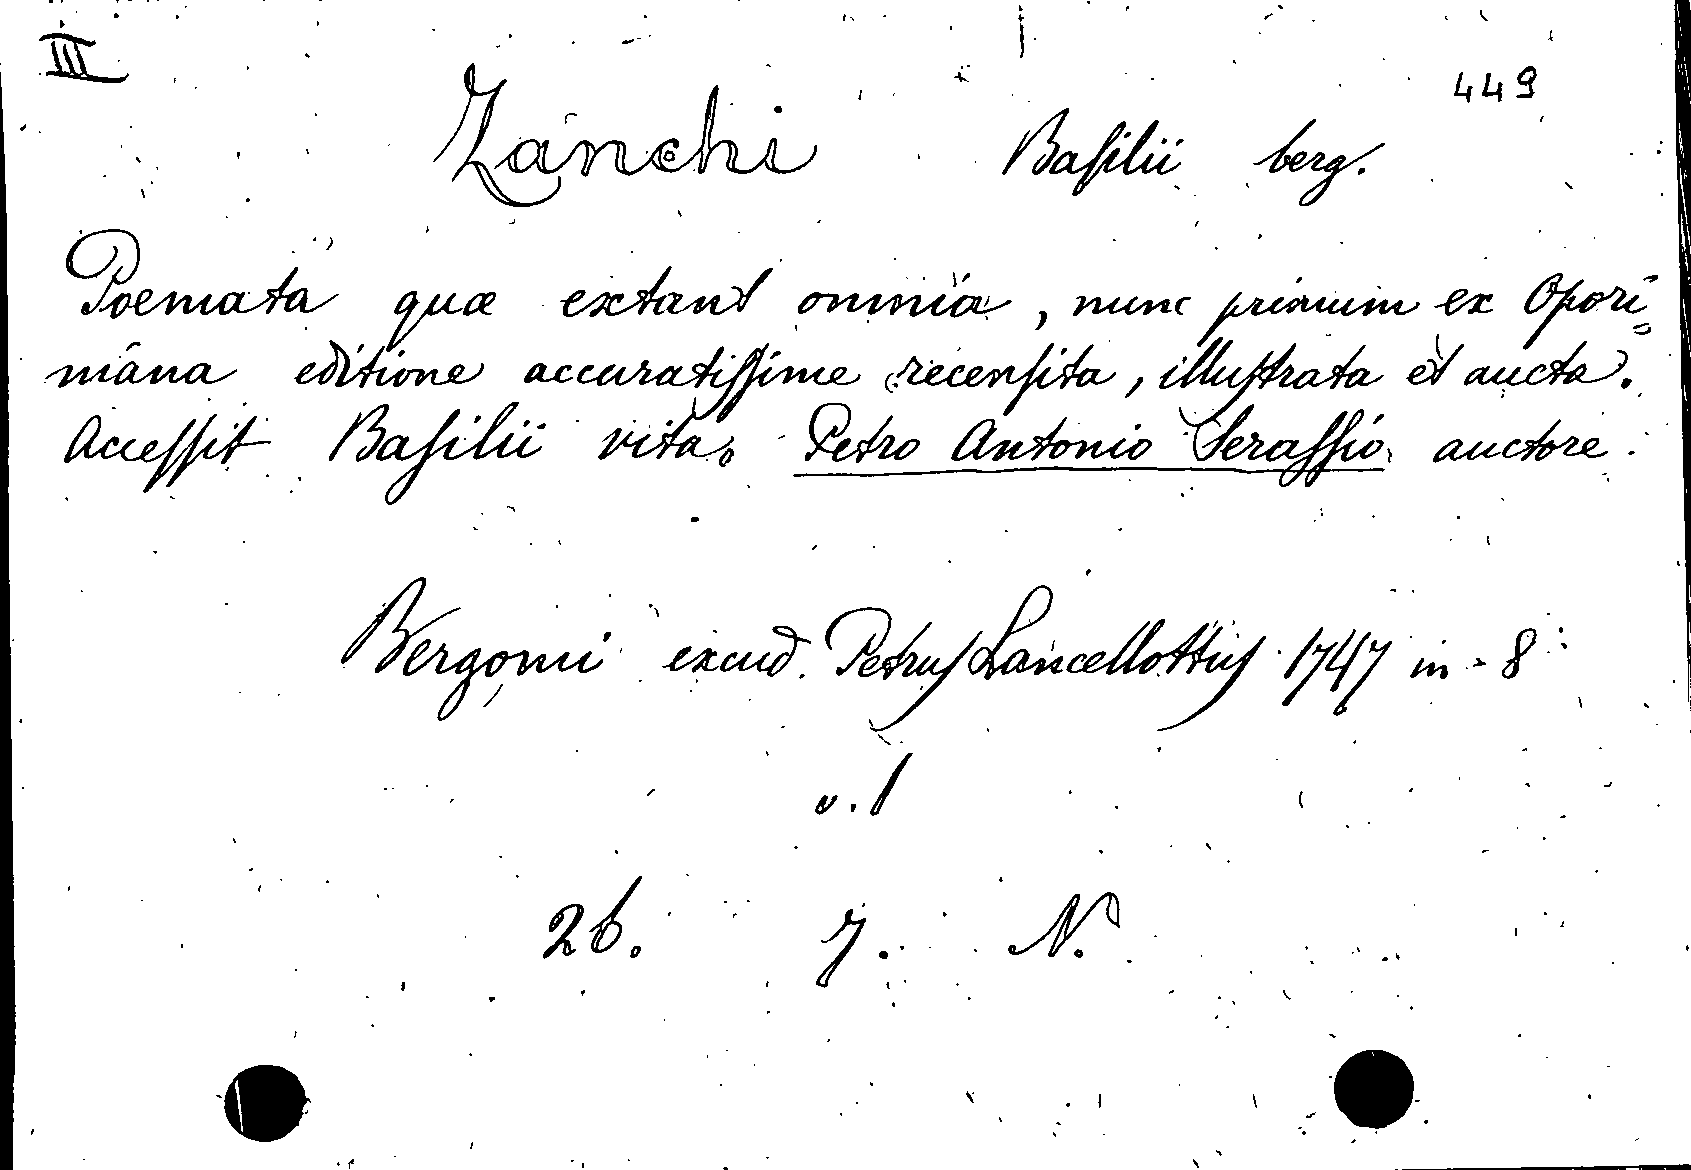 III
449
Zanchi Basilii berg.
Poemata quæ extant omnia, nunc primum ex Opori=
mana editione accuratissime recensita, illustrata et aucta.
Accessit Basilii vita, Petro Antonio Serassio auctore.
Bergomi excud. Petrus Lancellottus 1747 in-8
v. 1
26. 7. N.